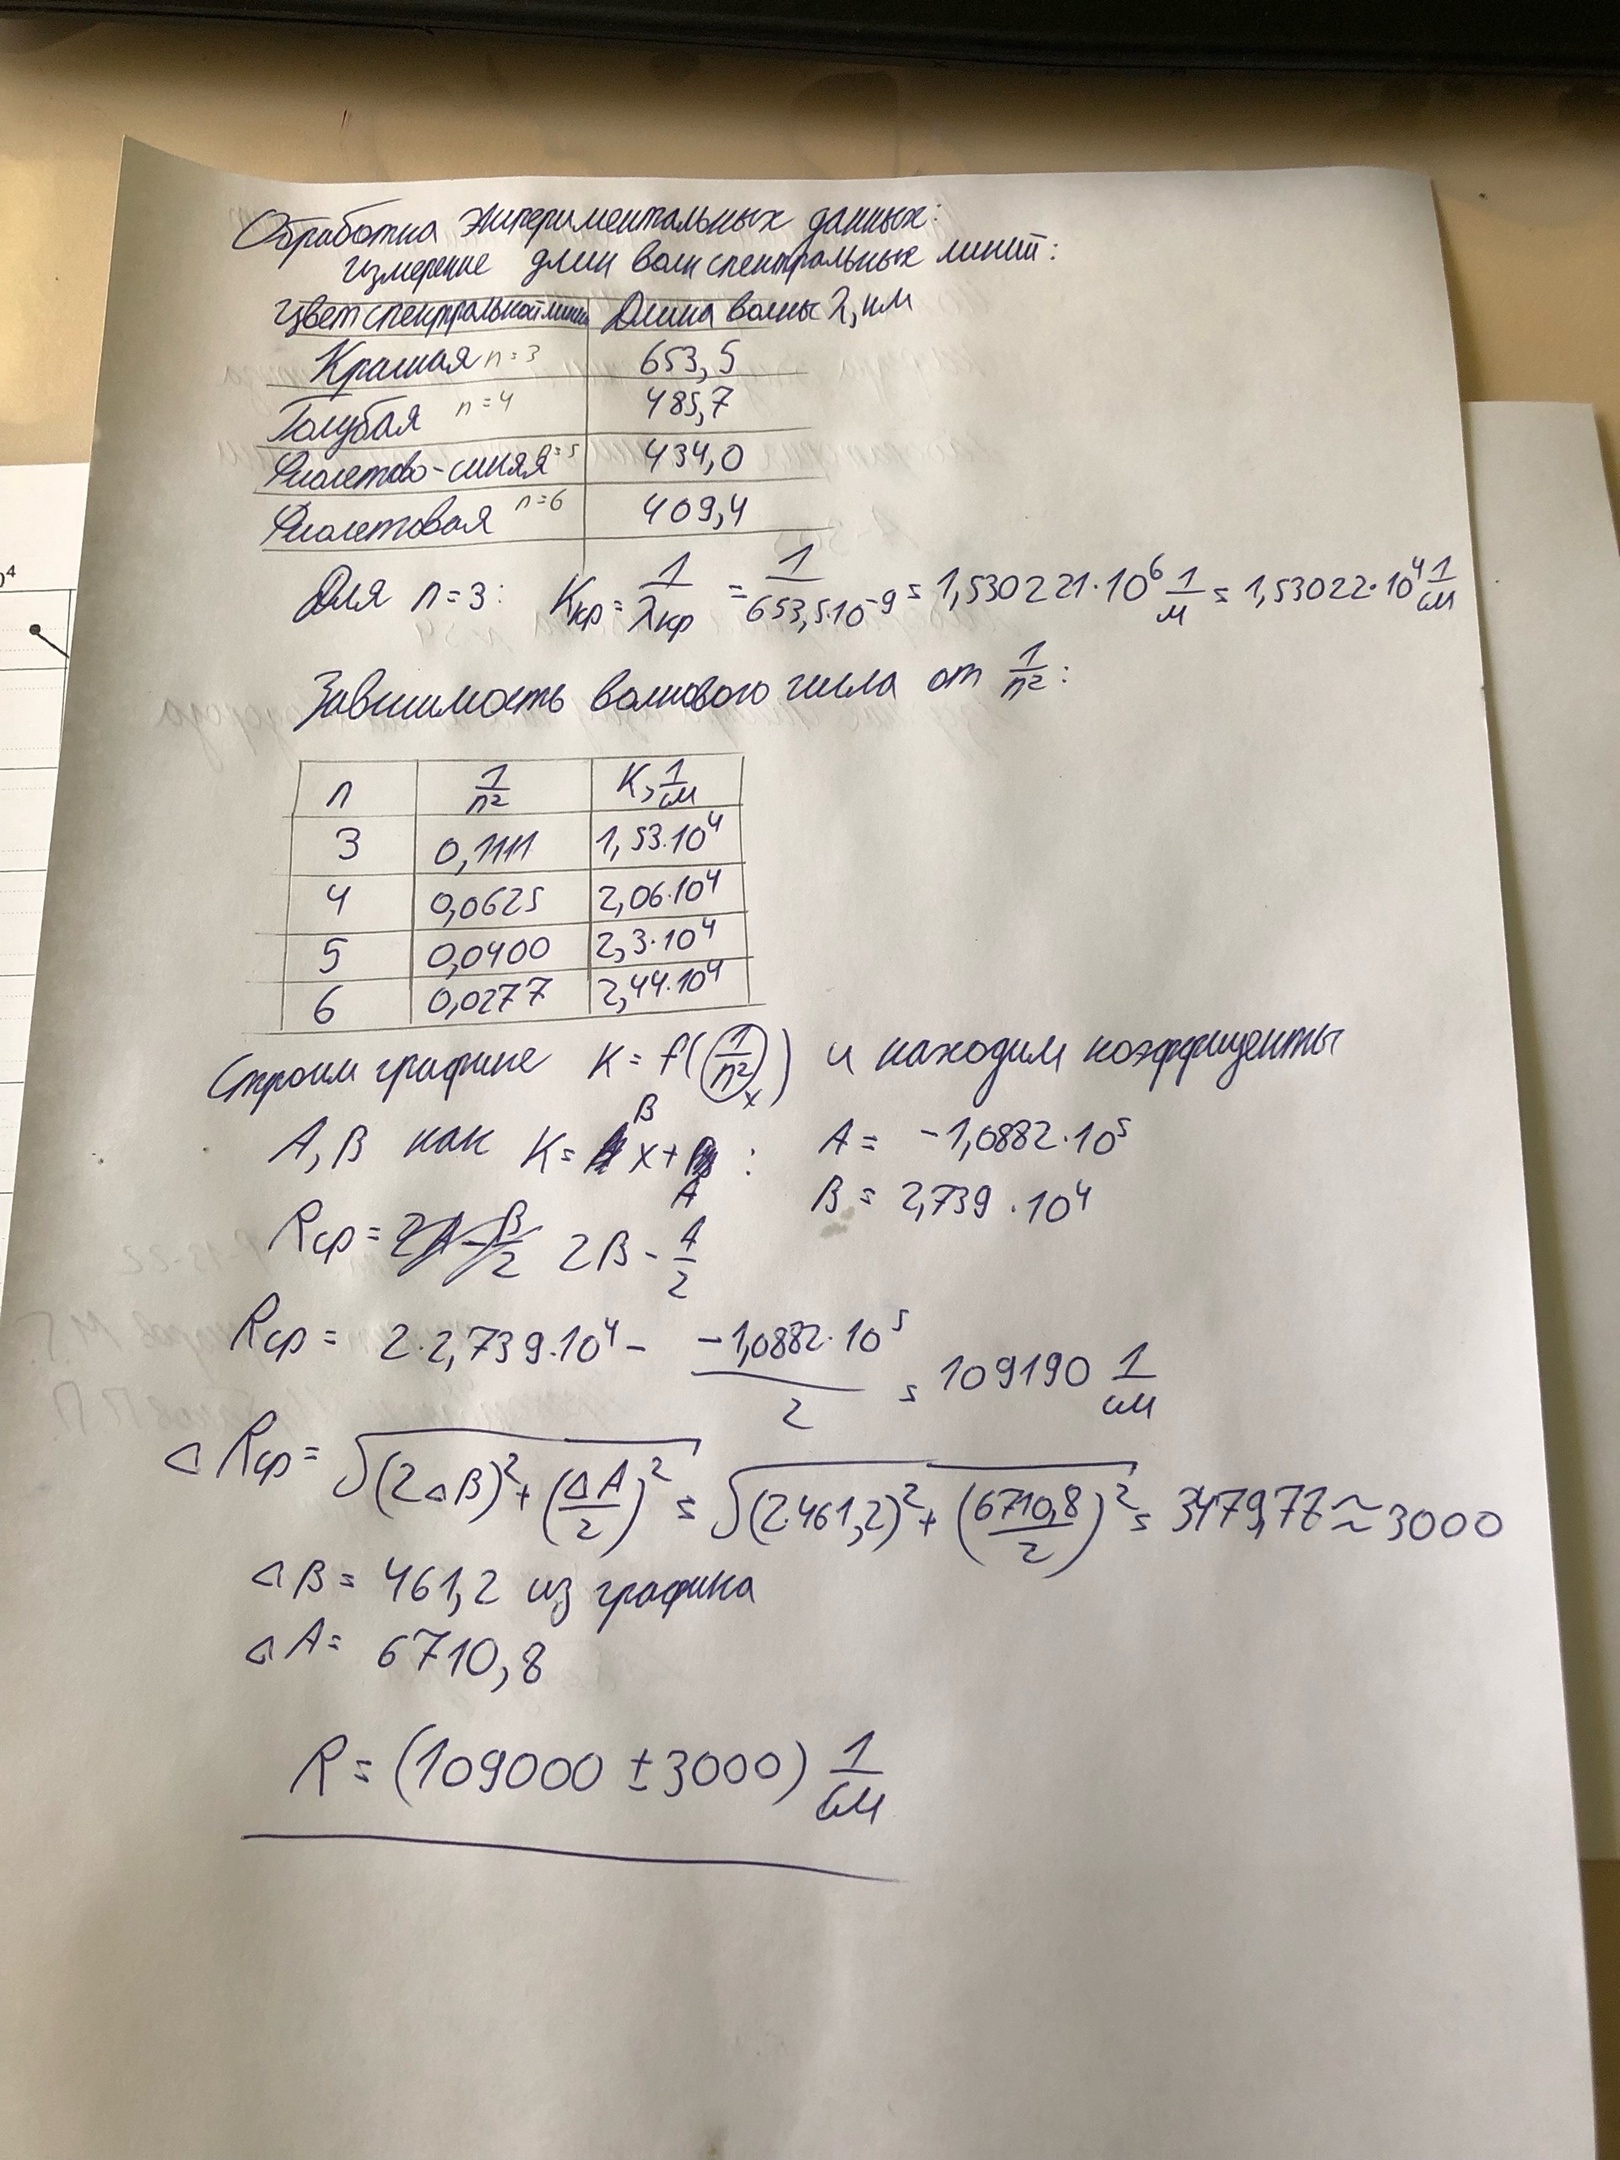 Обработка экпериментальных данных:
измерение длин волн спектральных линий:
Цвет спектральной линии Длина волны λ, нм
Красная n=3 653,5
Голубая n=4 485,7
Фиолетово-синяя n=5 434,0
Фиолетовая n=6 409,4
Для n=3: Kкр = 1/λкр = 1/653,5·10⁻⁹ = 1,530221·10⁶ 1/м = 1,53022·10⁴ 1/см
Зависимость волнового числа от 1/n²:
n 1/n² K, 1/см
3 0,1111 1,53·10⁴
4 0,0625 2,06·10⁴
5 0,0400 2,3·10⁴
6 0,0277 2,44·10⁴
Строим графике K = f(1/n²) x и находим коэффициенты
A, B как K = Bx + A : A = -1,0882·10⁵
B = 2,739·10⁴
Rср = 2A - B/2 2B - A/2
Rср = 2·2,739·10⁴ - -1,0882·10⁵/2 = 109190 1/см
ΔRср = √((2ΔB)² + (ΔA/2)²) = √((2·461,2)² + (6710,8/2)²) = 3479,78 ≈ 3000
ΔB = 461,2 из графика
ΔA = 6710,8
R = (109000 ± 3000) 1/см
0⁴